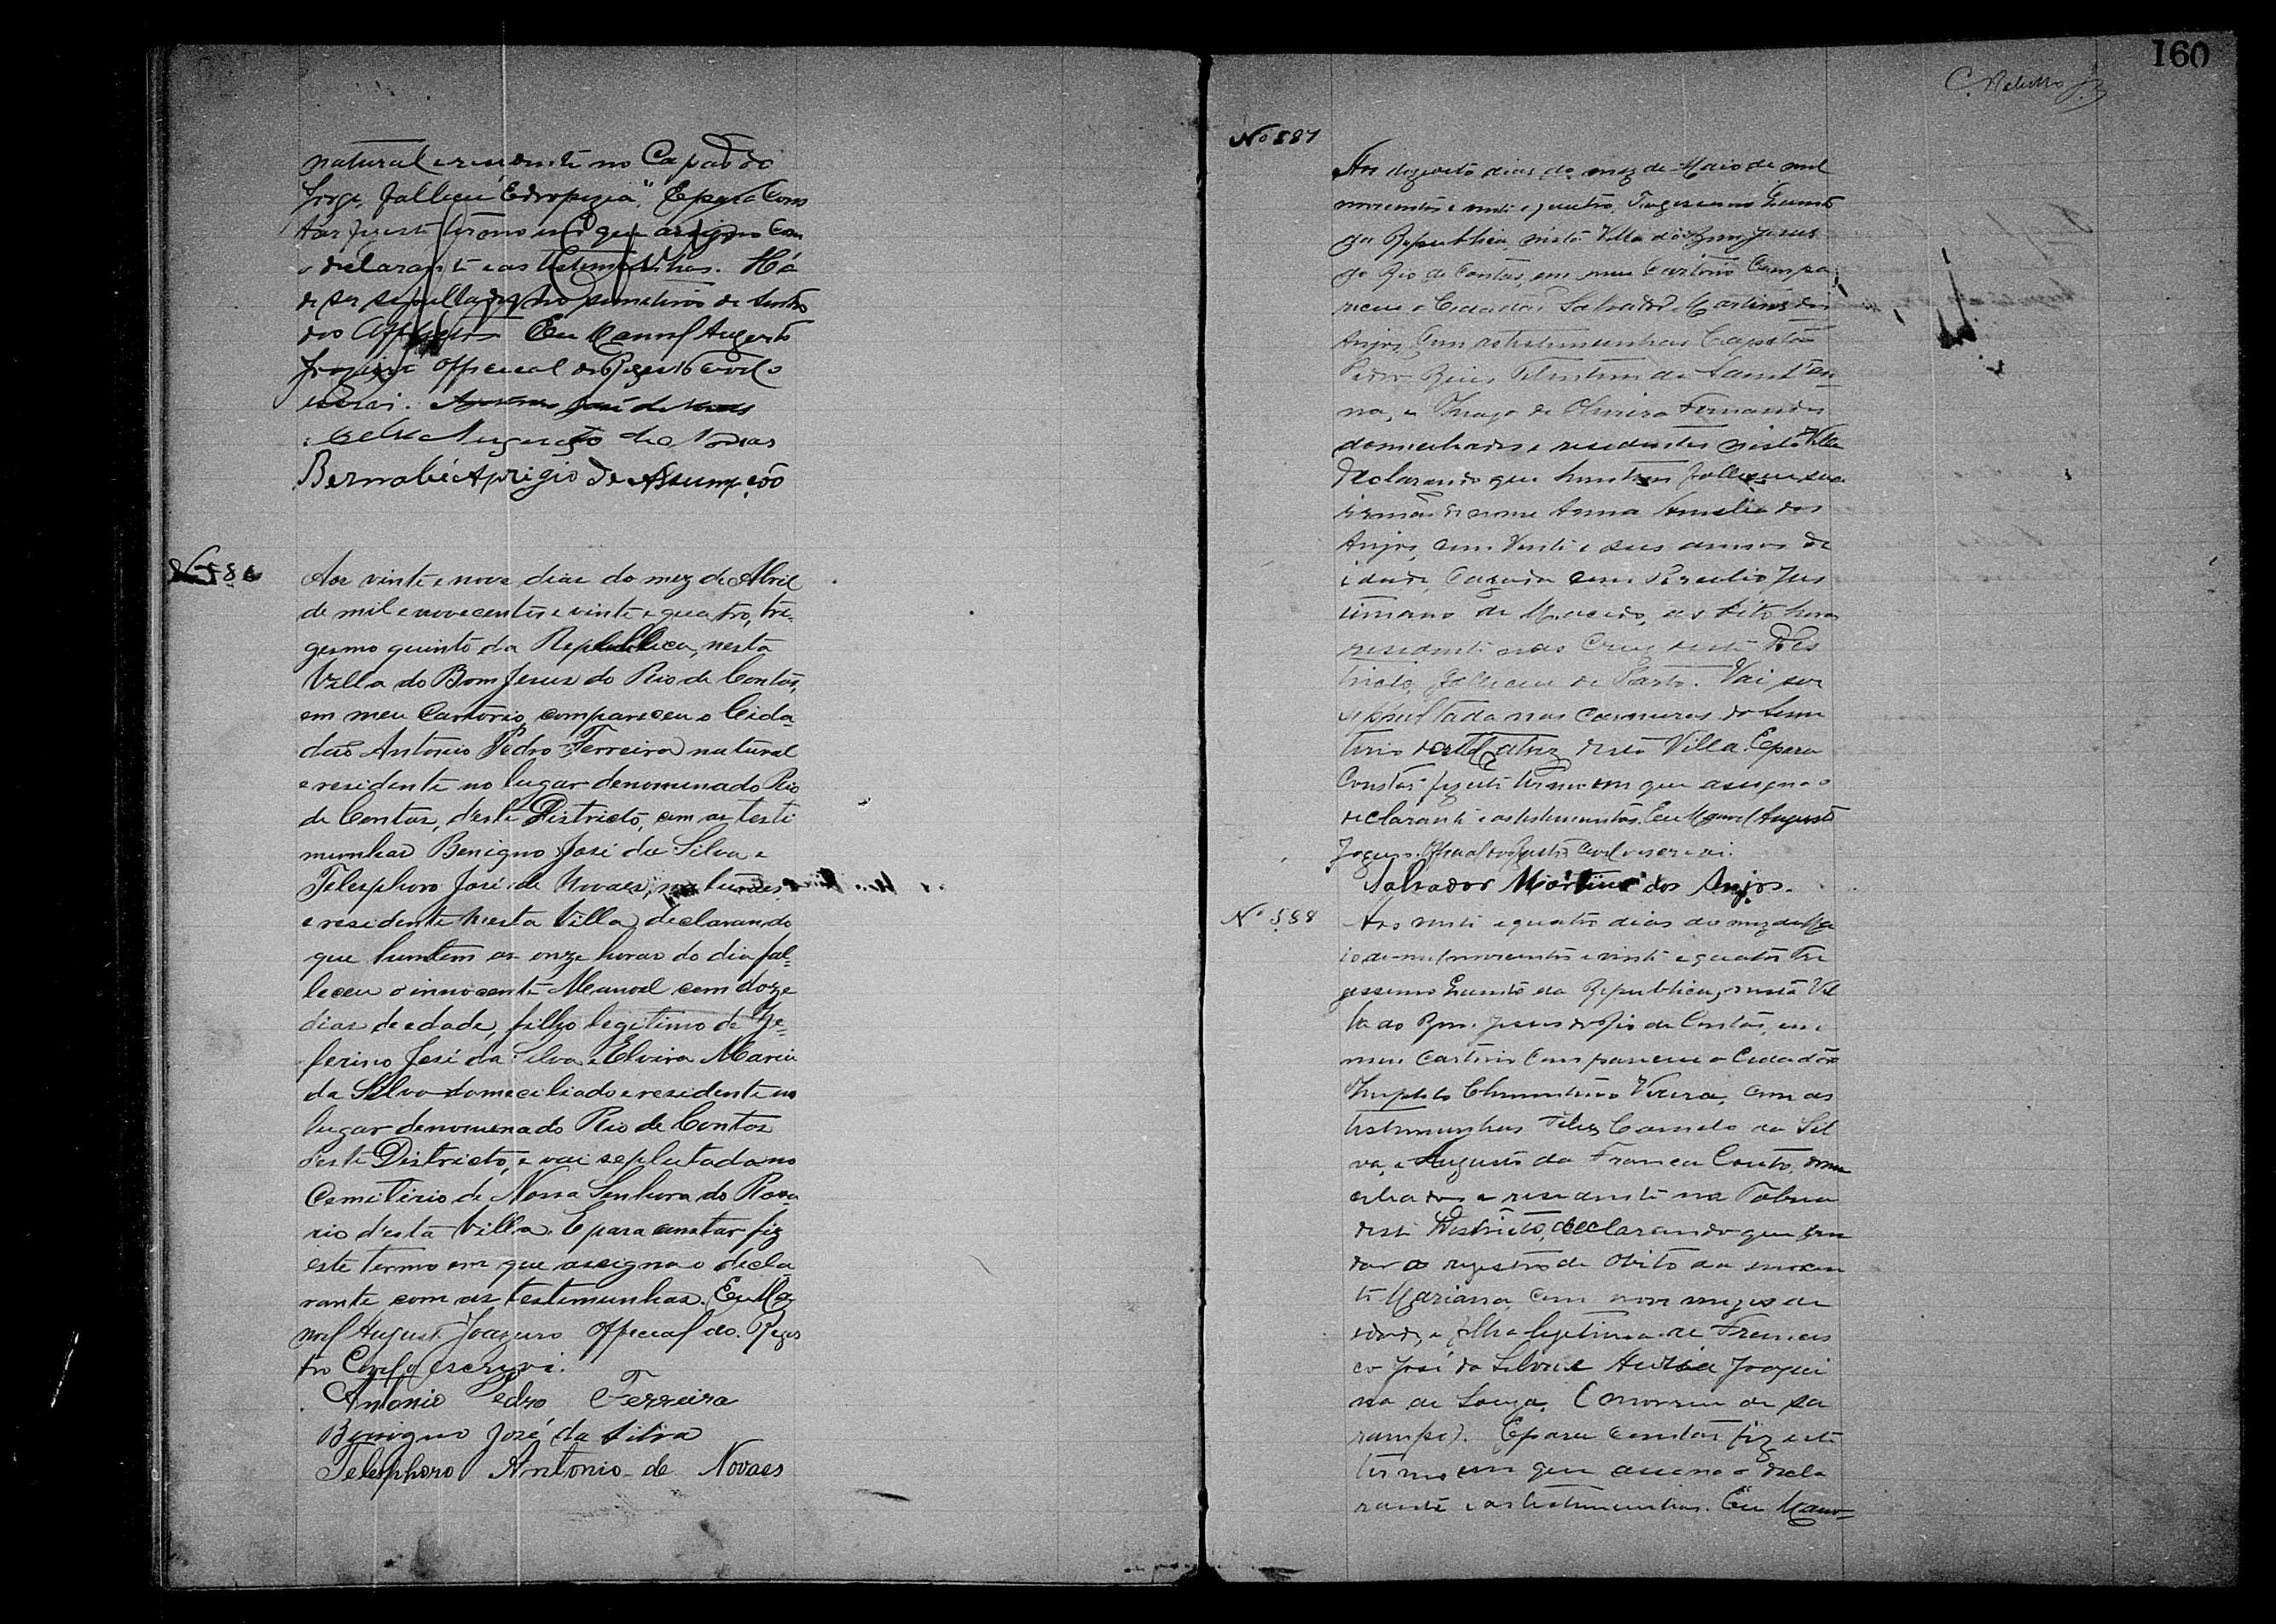 160
natural e residente no Capão do
Jorge, falleceu "Edropezia". E para Cons
tar fiz este termo em que assigno com
o declarante e as testemunhas. Há
de ser sepultado no semiterio de
dos Afflictos Eu Manoel Augusto
Joaquim official do Registro Civil o
escrevi.
Augusto de Novaes
Bernabé Aprigio de Assumpção
No 586
Aos vinte e nove dias do mez de Abril
de mil e novecentos e vinte e quatro, tri-
gesmo quinto da Republica, nesta
Villa do Bom Jesus do Rio de Contas,
em meu Cartorio, compareceu o Cida-
dão Antonio Pedro Ferreira natural
e residente no lugar denominado Rio
de Contas, d'este Districto, com as testi
munhas Benigno José da Silva e
Telesphoro José de Novaes, naturaes
e residente nesta Villa, declarando
que hontem as onze horas do dia fal-
leceu o innocente Manoel com doze
dias de edade, filho legitimo de Ze-
ferino José da Silva e Elvira Maria
da Silva domeciliado e residente no
lugar denomenado Rio de Contas
d'este Districto, e vai seplutada no
Cemiterio de Nossa Senhora do Rosa
rio d'esta Villa. E para constar fiz
este termo em que assigna o decla-
rante com as testemunhas. Eu Ma
noel Augusto Joaquim Official do Regis
tro Civil o escrevi.
Antonio Pedro Ferreira
Benigno José da Silva
Telesphoro Antonio de Novaes
No 587
Aos dezoito dias do mez de Maio de mil
novecentos e vinte e quatro, Trigesimo Quinto
da Republica, nesta Villa do Bom Jesus
do Rio de Contas, em meu Cartorio Compa
receu o Cidadão Salvador Martins dos
Anjos, Com as testemunhas Capitão
Pedro de Sant'an
na, e Thiago de Oliveira Fernandes
domiciliados e residentes nesta Villa
Declarando que hontem falleceu sua
irmão de nome Anna Amelia dos
Anjos, com Vinte e seis annos de
idade, Cazada com Jus
tiniano de Macedo, as oito horas
residente nas Cruz deste Dis
tricto, falleceu de Parto. Vai ser
sepultada nas Carneiras do Semi
terio da Matriz desta Villa. E para
Constar fiz este termo em que assigna o
declarante e as testemunhas. Eu Manoel Augusto
Joaquim Official do Registro Civil o escrevi.
Salvador Martins dos Anjos.
No 588
Aos vinte e quatro dias do mez de Ma
io de mil novecentos e vinte e quatro Tri
gessimo Quinto da Republica, nesta Vil
la do Bom Jesus do Rio de Contas, em
meu Cartorio Compareceu o Cidadão
Clementino Vieira, com as
testemunhas Felix Camelo da Sil
va, e Augusto da Franca Couto, domi
ciliados e residente na
deste Districto, declarando que vem
dar o registro de Obito da innocen
te Mariana, com nove mezes de
idade, e filha legitima de Francis
co José da Silva e Joaqui
na de Souza. (Morreu de sa
rampo). E para constar fiz este
termo em que assina o decla
rante e as testemunhas. Eu Mano-